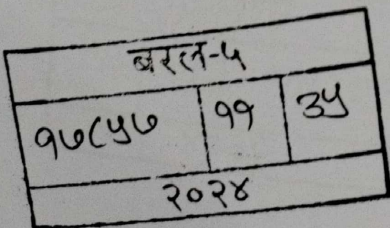 बरल-५
१७८५७ ११ ३५
२०२४